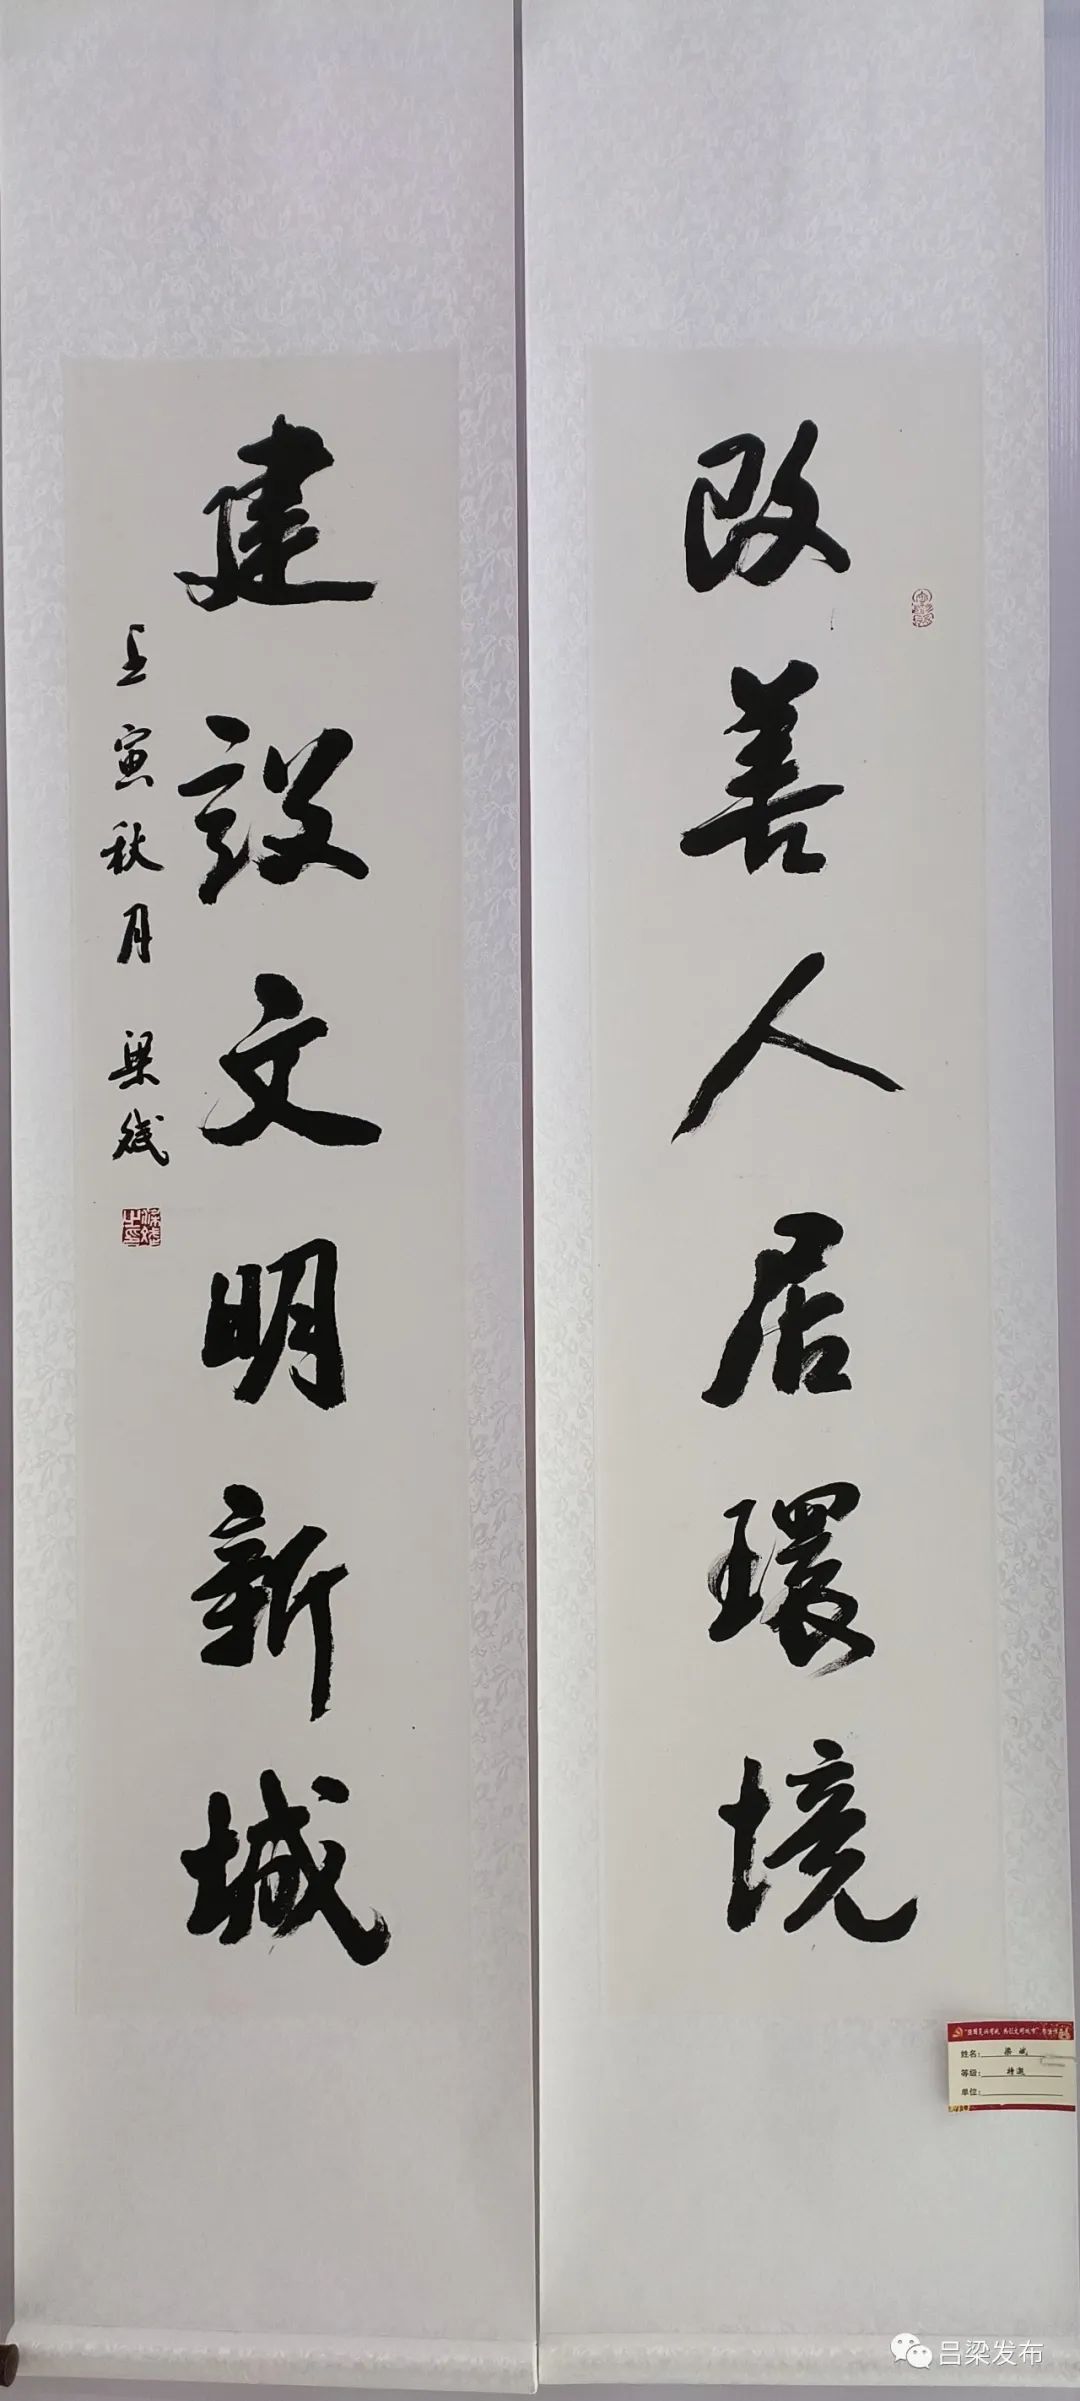 改善人居環境
建設文明新城
壬寅秋月 梁斌
姓名：梁斌
等级：特邀
单位：
吕梁发布